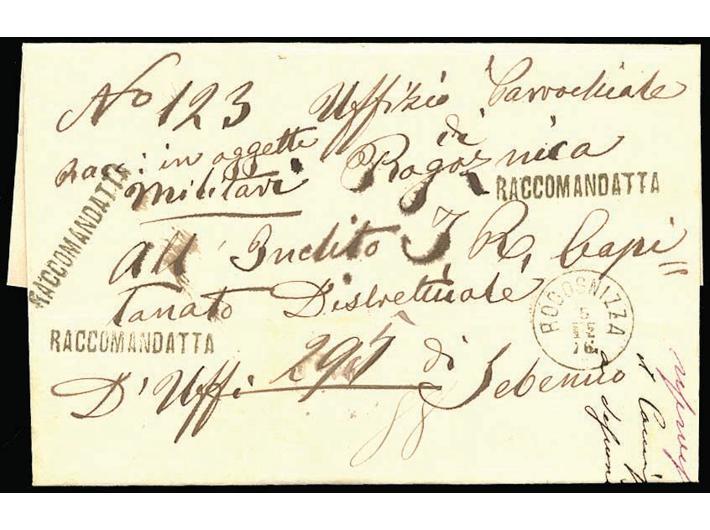 No 123 Uffizio Parrochiale
Racc: in oggetti di
Militari Rogosnica
RACCOMANDATTA
RACCOMANDATTA
All' Inclito I R. Capi=
tanato Distrettuale
RACCOMANDATTA
ROGOSNIZZA
5
12
76
D' Uffi 295 di Sebenico